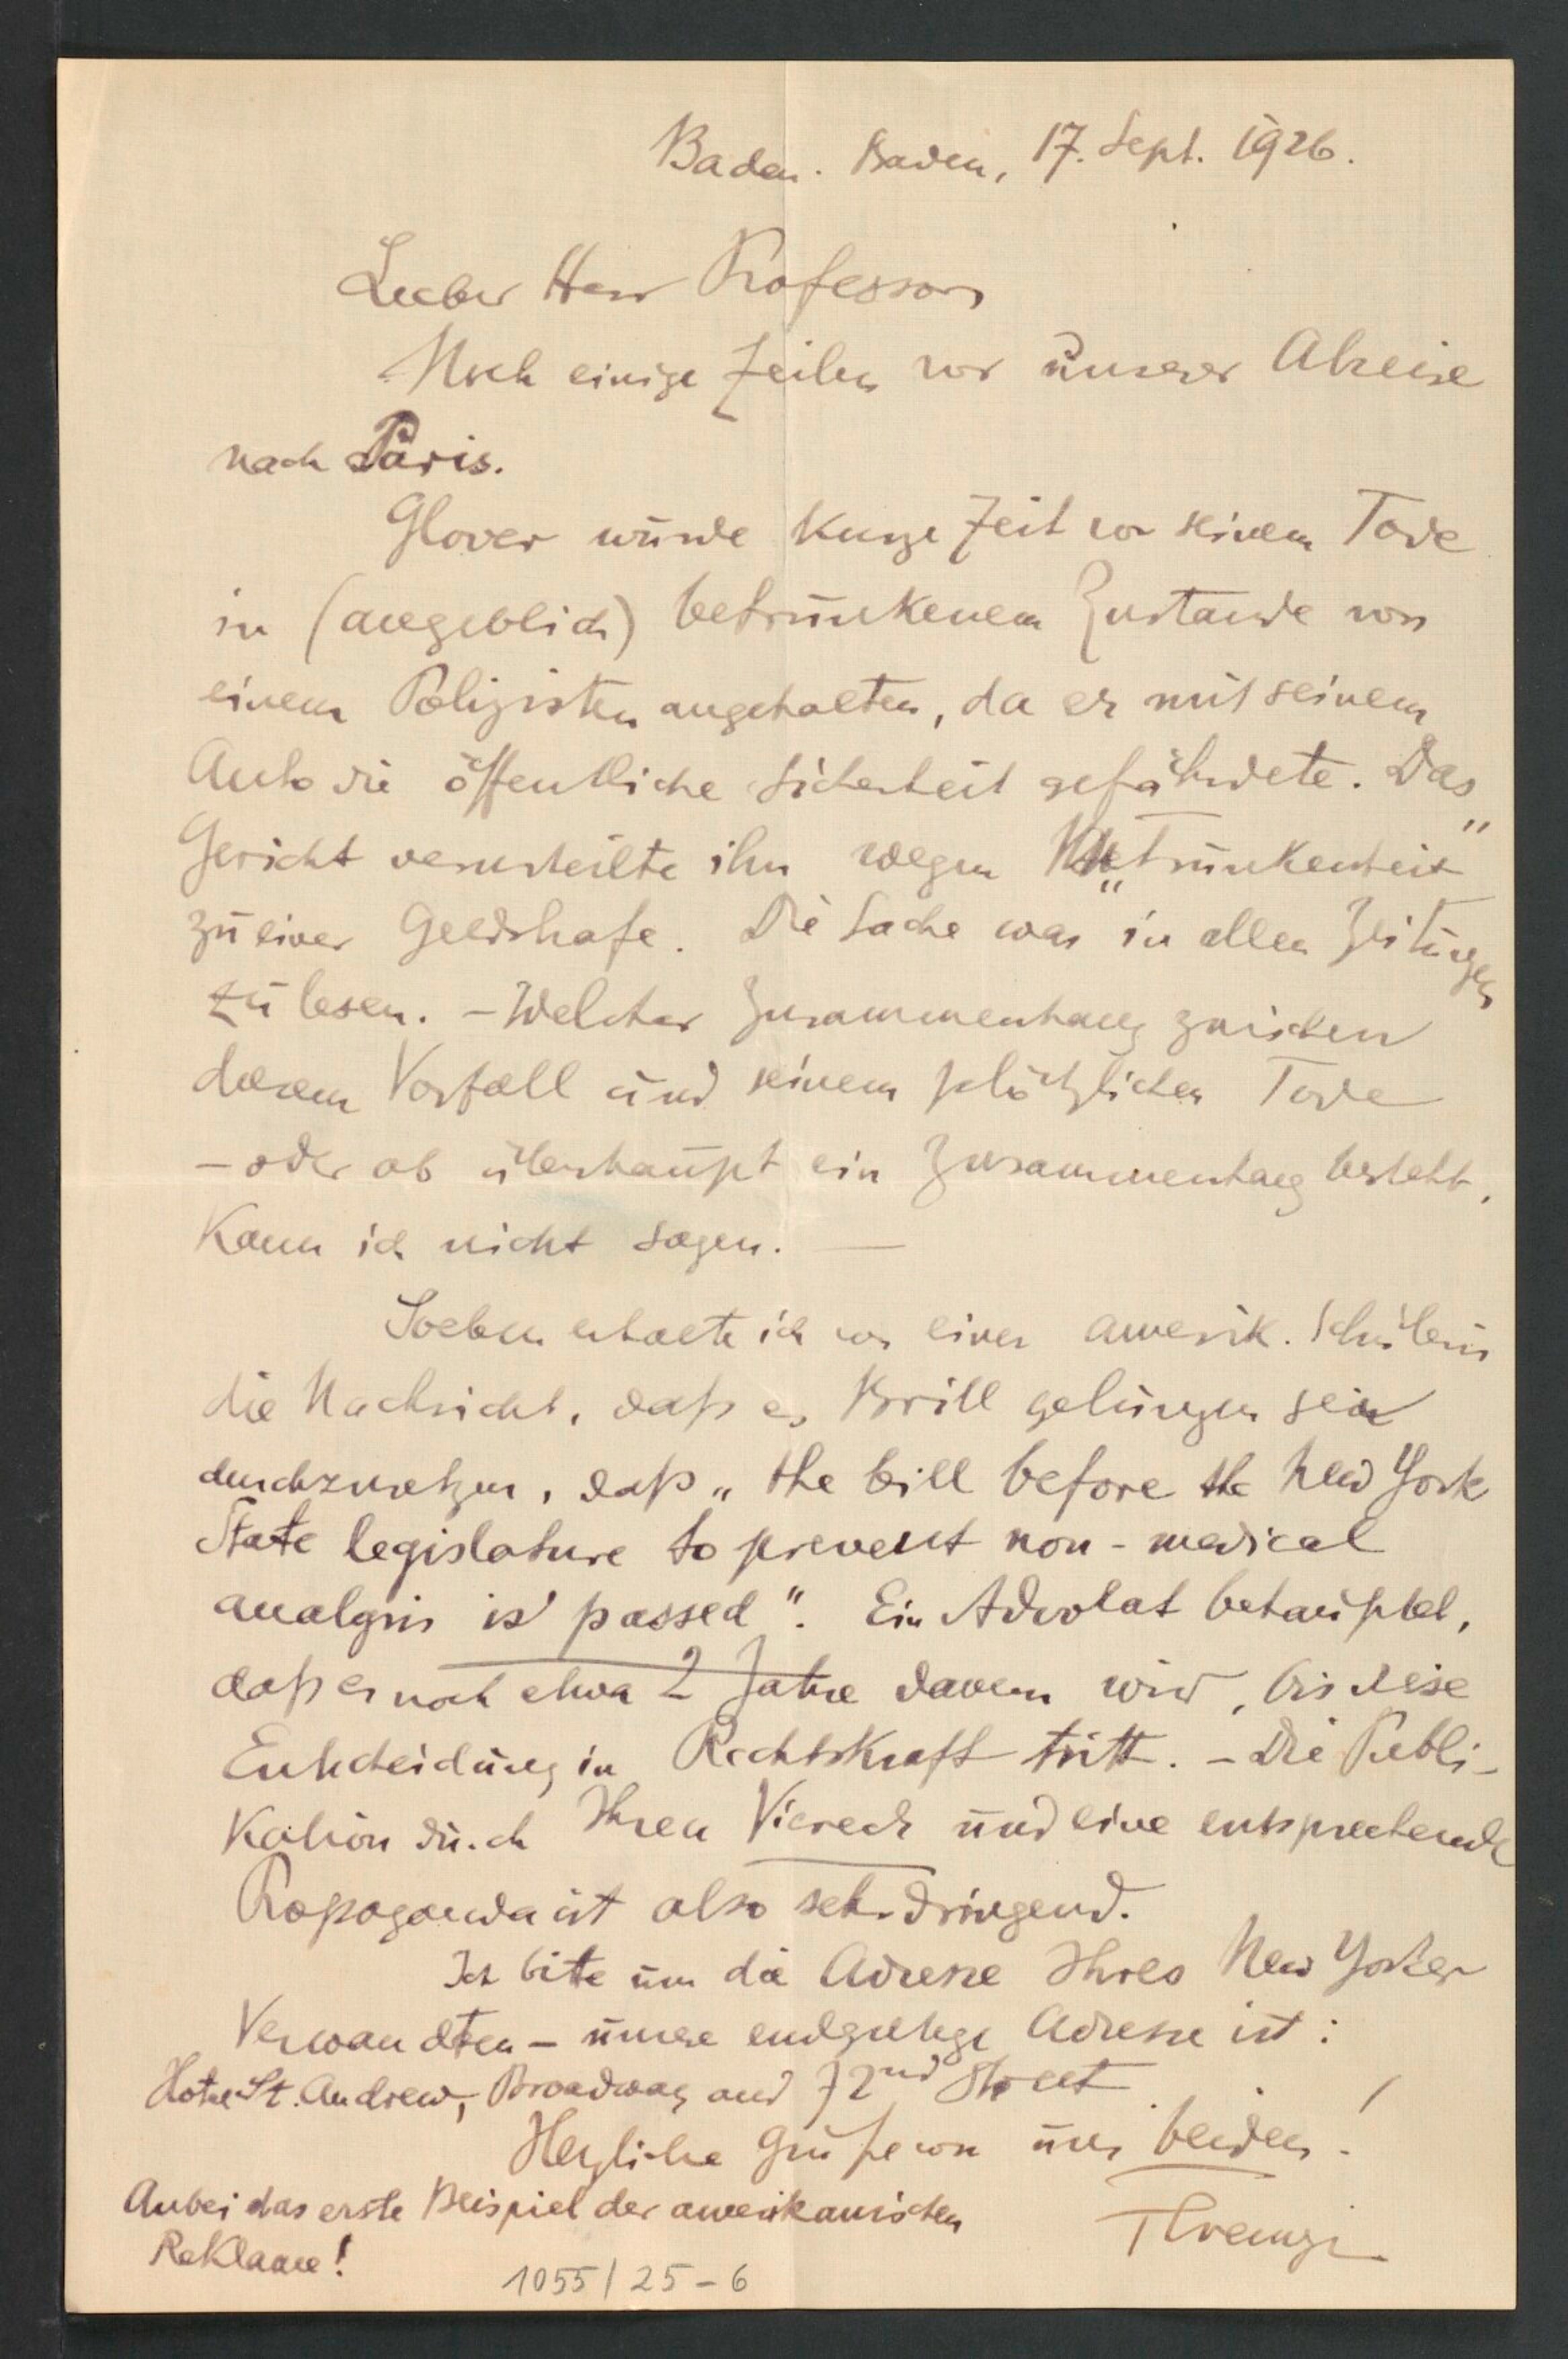 Baden-Baden, 17. Sept. 1926.
Lieber Herr Professor
Noch einige Zeilen vor unserer Abreise
nach Paris.
Glover wurde kurze Zeit vor seinem Tode
in (angeblich) betrunkenem Zustande von
einem Polizisten angehalten, da er mit seinem
Auto die öffentliche Sicherheit gefährdete. Das
Gericht verurteilte ihn wegen „Trunkenheit"
zu einer Geldstrafe. Die Sache war in allen Zeitungen
zu lesen. – Welcher Zusammenhang zwischen
diesem Vorfall und seinem plötzlichen Tode
– oder ob überhaupt ein Zusammenhang besteht,
kann ich nicht sagen. —
Soeben erhalte ich von einer amerik. Schülerin
die Nachricht, daß es Brill gelungen sei
durchzusetzen, daß „the bill before the New York
State legislature to prevent non-medical
analysis is passed". Ein Advokat behauptet,
daß es noch etwa 2 Jahre dauern wird, bis diese
Entscheidung in Rechtskraft tritt. – Die Publi-
kation durch Ihren Viereck und eine entsprechende
Propaganda ist also sehr dringend.
Ich bitte um die Adresse Ihres New Yorker
Verwandten – unsere endgiltige Adresse ist:
Hotel St. Andrew, Broadway and 72nd Street
Herzliche Grüße von uns beiden!
Ferenczi
Anbei das erste Beispiel der amerikanischen
Reklame!
1055/25-6